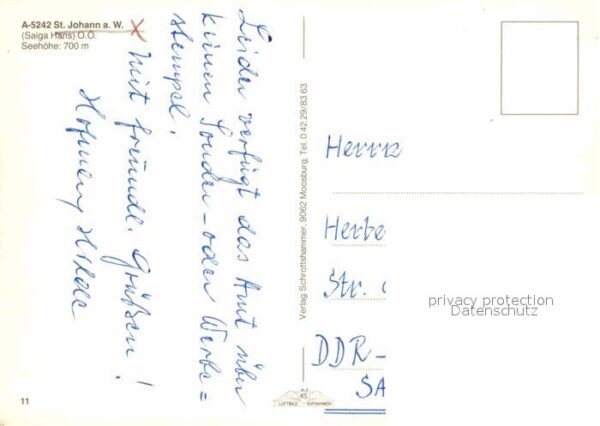 A-5242 St. Johann a. W.
(Saiga Hans) O.Ö.
Seehöhe: 700 m
Leider verfügt das Amt über
keinen Sonder- oder Werbe=
stempel.
Mit freundl. Grüßen!
Hilde
Verlag Schrottshammer, 9062 Moosburg, Tel. 0 42 29/83 63
Herrn
Herbe
Str.
DDR-
SA
privacy protection
Datenschutz
11
KS
LUFTBILD AUFNAHMEN